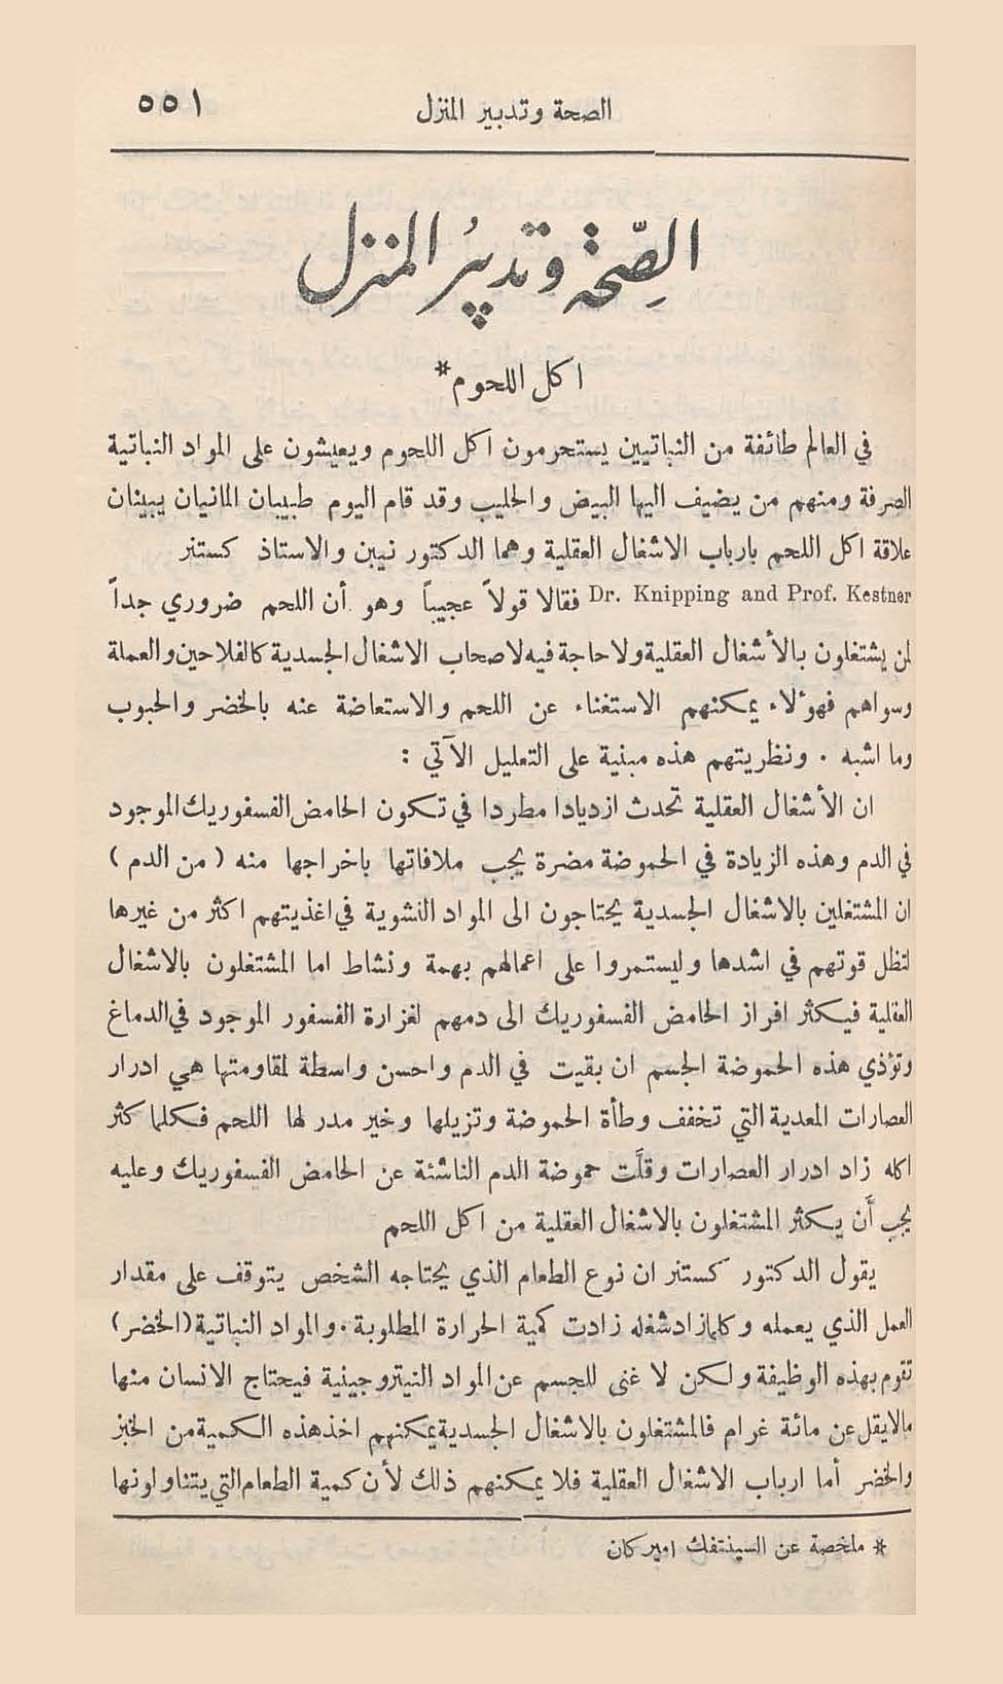 الصحة وتدبير المنزل
٥٥١
الصِّحَّة وتدبيرُ المنزل
اكل اللحوم*
في العالم طائفة من النباتيين يستحرمون اكل اللحوم ويعيشون على المواد النباتية
الصرفة ومنهم من يضيف اليها البيض والحليب وقد قام اليوم طبيبان المانيان يبينان
علاقة اكل اللحم بارباب الاشغال العقلية وهما الدكتور نيبن والاستاذ كستنر
Dr. Knipping and Prof. Kestner فقالا قولاً عجيباً وهو أن اللحم ضروري جداً
لمن يشتغلون بالأشغال العقلية ولا حاجة فيه لاصحاب الاشغال الجسدية كالفلاحين والعملة
وسواهم فهوءلاء يمكنهم الاستغناء عن اللحم والاستعاضة عنه بالخضر والحبوب
وما اشبه . ونظريتهم هذه مبنية على التعليل الآتي :
ان الأشغال العقلية تحدث ازديادا مطردا في تكون الحامض الفسفوريك الموجود
في الدم وهذه الزيادة في الحموضة مضرة يجب ملافاتها باخراجها منه ( من الدم )
ان المشتغلين بالاشغال الجسدية يحتاجون الى المواد النشوية في اغذيتهم اكثر من غيرها
لتظل قوتهم في اشدها وليستمروا على اعمالهم بهمة ونشاط اما المشتغلون بالاشغال
العقلية فيكثر افراز الحامض الفسفوريك الى دمهم لغزارة الفسفور الموجود في الدماغ
وتؤذي هذه الحموضة الجسم ان بقيت في الدم واحسن واسطة لمقاومتها هي ادرار
العصارات المعدية التي تخفف وطأة الحموضة وتزيلها وخير مدر لها اللحم فكلما كثر
اكله زاد ادرار العصارات وقلَّت حموضة الدم الناشئة عن الحامض الفسفوريك وعليه
يجب أَن يكثر المشتغلون بالاشغال العقلية من اكل اللحم
يقول الدكتور كستنر ان نوع الطعام الذي يحتاجه الشخص يتوقف على مقدار
العمل الذي يعمله وكلما زاد شغله زادت كمية الحرارة المطلوبة . والمواد النباتية (الخضر)
تقوم بهذه الوظيفة ولكن لا غنى للجسم عن المواد النيتروجينية فيحتاج الانسان منها
مالايقل عن مائة غرام فالمشتغلون بالاشغال الجسدية يمكنهم اخذ هذه الكمية من الخبز
والخضر أما ارباب الاشغال العقلية فلا يمكنهم ذلك لأن كمية الطعام التي يتناولونها
* ملخصة عن السينتفك اميركان